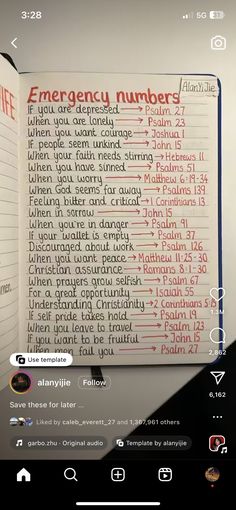 3:28
5G 31
AlanYiJie
Emergency numbers
If you are depressed → Psalm 27
When you are lonely → Psalm 23
When you want courage → Joshua 1
If people seem unkind → John 15
When your faith needs stirring → Hebrews 11
When you have sinned → Psalms 51
When you worry → Matthew 6:19-34
When God seems far away → Psalms 139
Feeling bitter and critical → 1 Corinthians 13
When in sorrow → John 15
When you're in danger → Psalm 91
If your wallet is empty → Psalm 37
Discouraged about work → Psalm 126
When you want peace → Matthew 11:25-30
Christian assurance → Romans 8:1-30
When prayers grow selfish → Psalm 67
For a great opportunity → Isaiah 55
Understanding Christianity → 2 Corinthians 5:15
If self pride takes hold → Psalm 19
When you leave to travel → Psalm 123
If you want to be fruitful → John 15
When men fail you → Psalm 27
1.3M
2,862
6,162
Use template
alanyijie Follow
Save these for later ...
Liked by caleb_everett_27 and 1,367,961 others
garbo.zhu · Original audio
Template by alanyijie